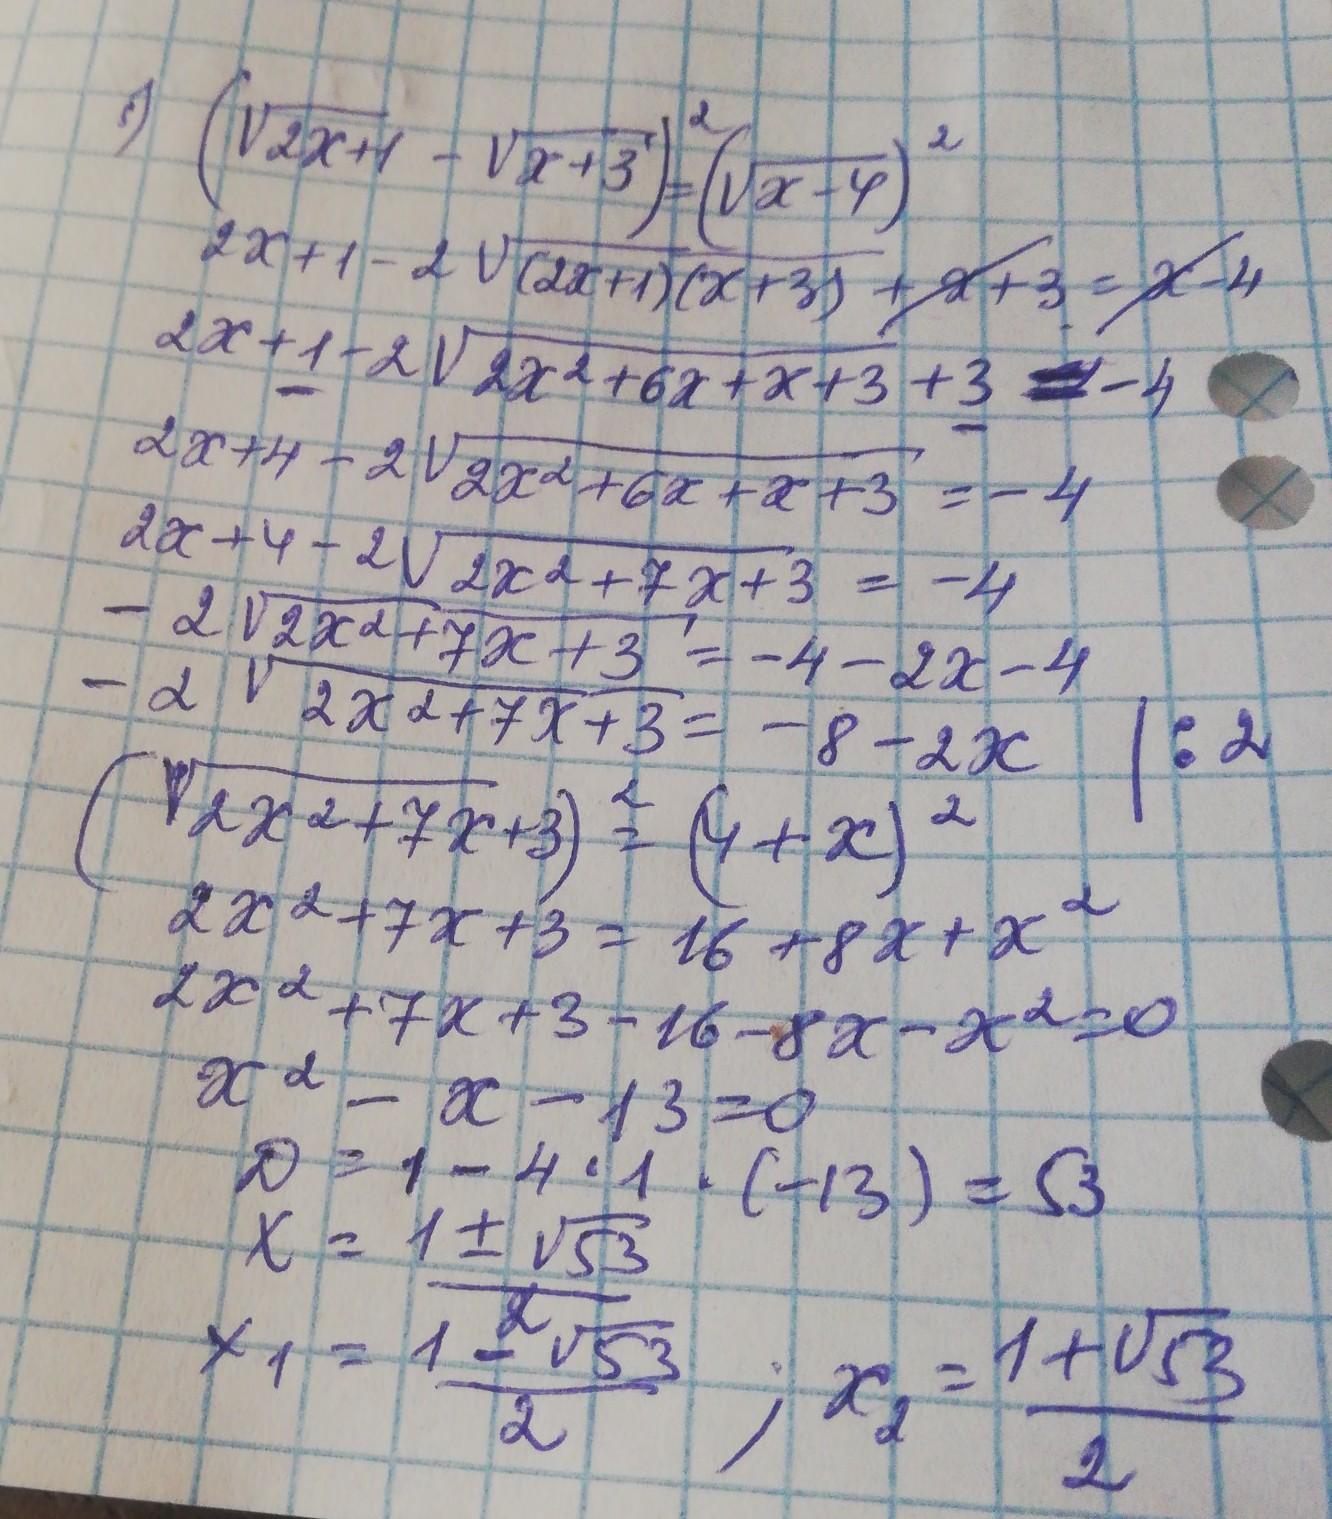 1) (√2x+1 - √x+3)² = (√x-4)²
2x+1-2√(2x+1)(x+3) + x+3 = x-4
2x+1-2√2x²+6x+x+3 +3 = -4
2x+4-2√2x²+6x+x+3 = -4
2x+4-2√2x²+7x+3 = -4
-2√2x²+7x+3 = -4-2x-4
-2√2x²+7x+3 = -8-2x |:2
(√2x²+7x+3)² = (4+x)²
2x²+7x+3 = 16+8x+x²
2x²+7x+3-16-8x-x²=0
x²-x-13=0
D = 1-4·1·(-13) = 53
X = 1±√53 / 2
x₁ = 1-√53 / 2 ; x₂ = 1+√53 / 2